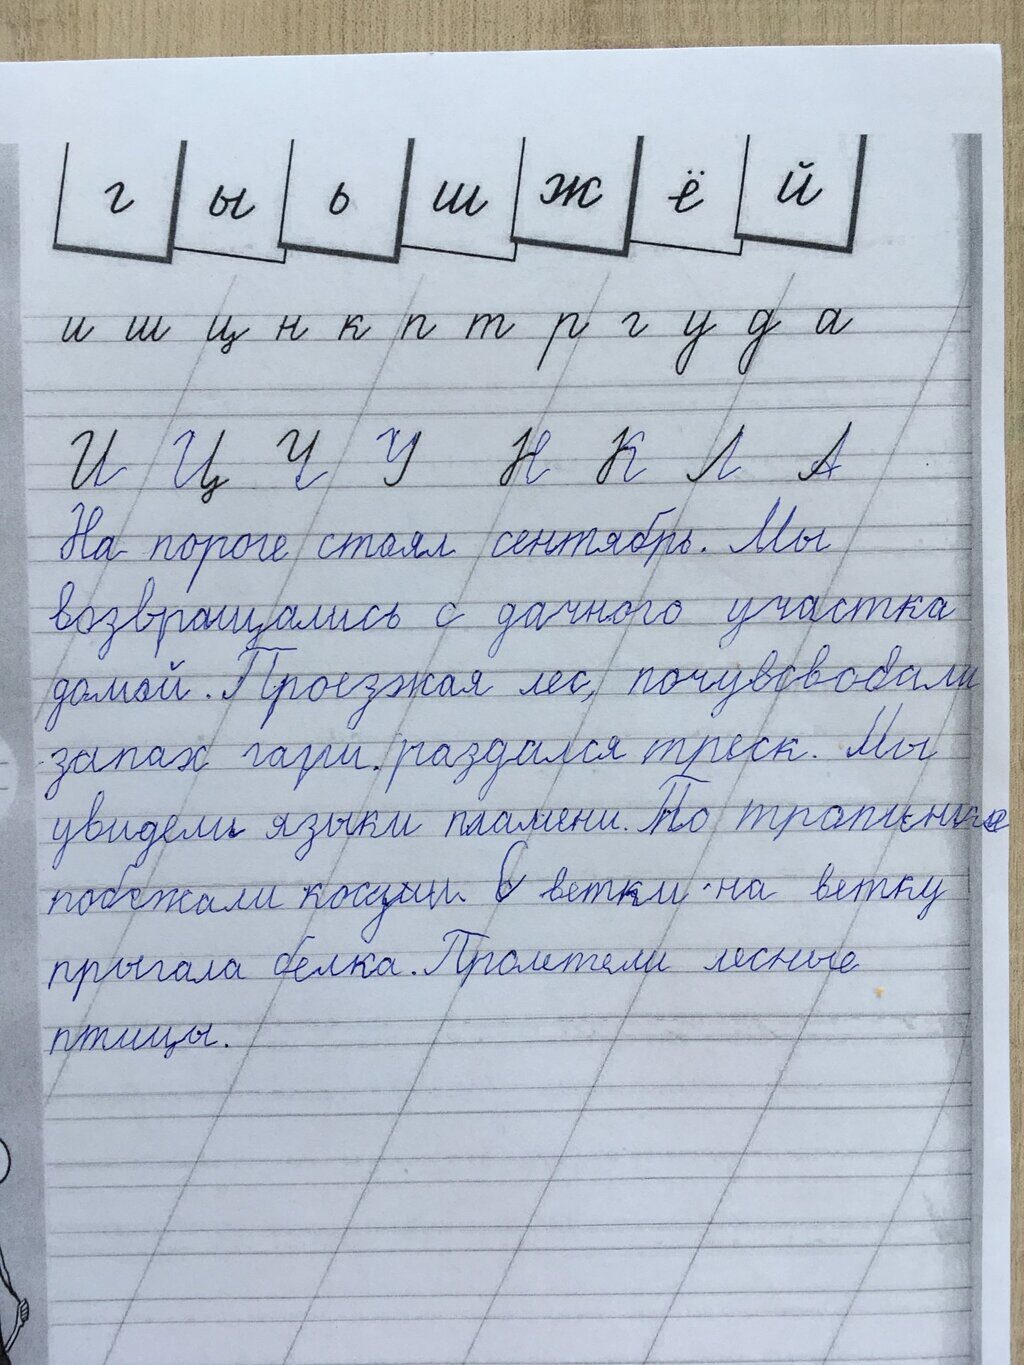 г ы ь ш ж ё й
и ш ц н к п т р г у д а
И Ц Ч У Н К Л А
На пороге стоял сентябрь. Мы
возвращались с дачного участка
домой. Проезжая лес, почувсвовали
запах гари. раздался треск. Мы
увидели языки пламени. По
побежали С ветки на ветку
прыгала белка. Пролетели лесные
птицы.